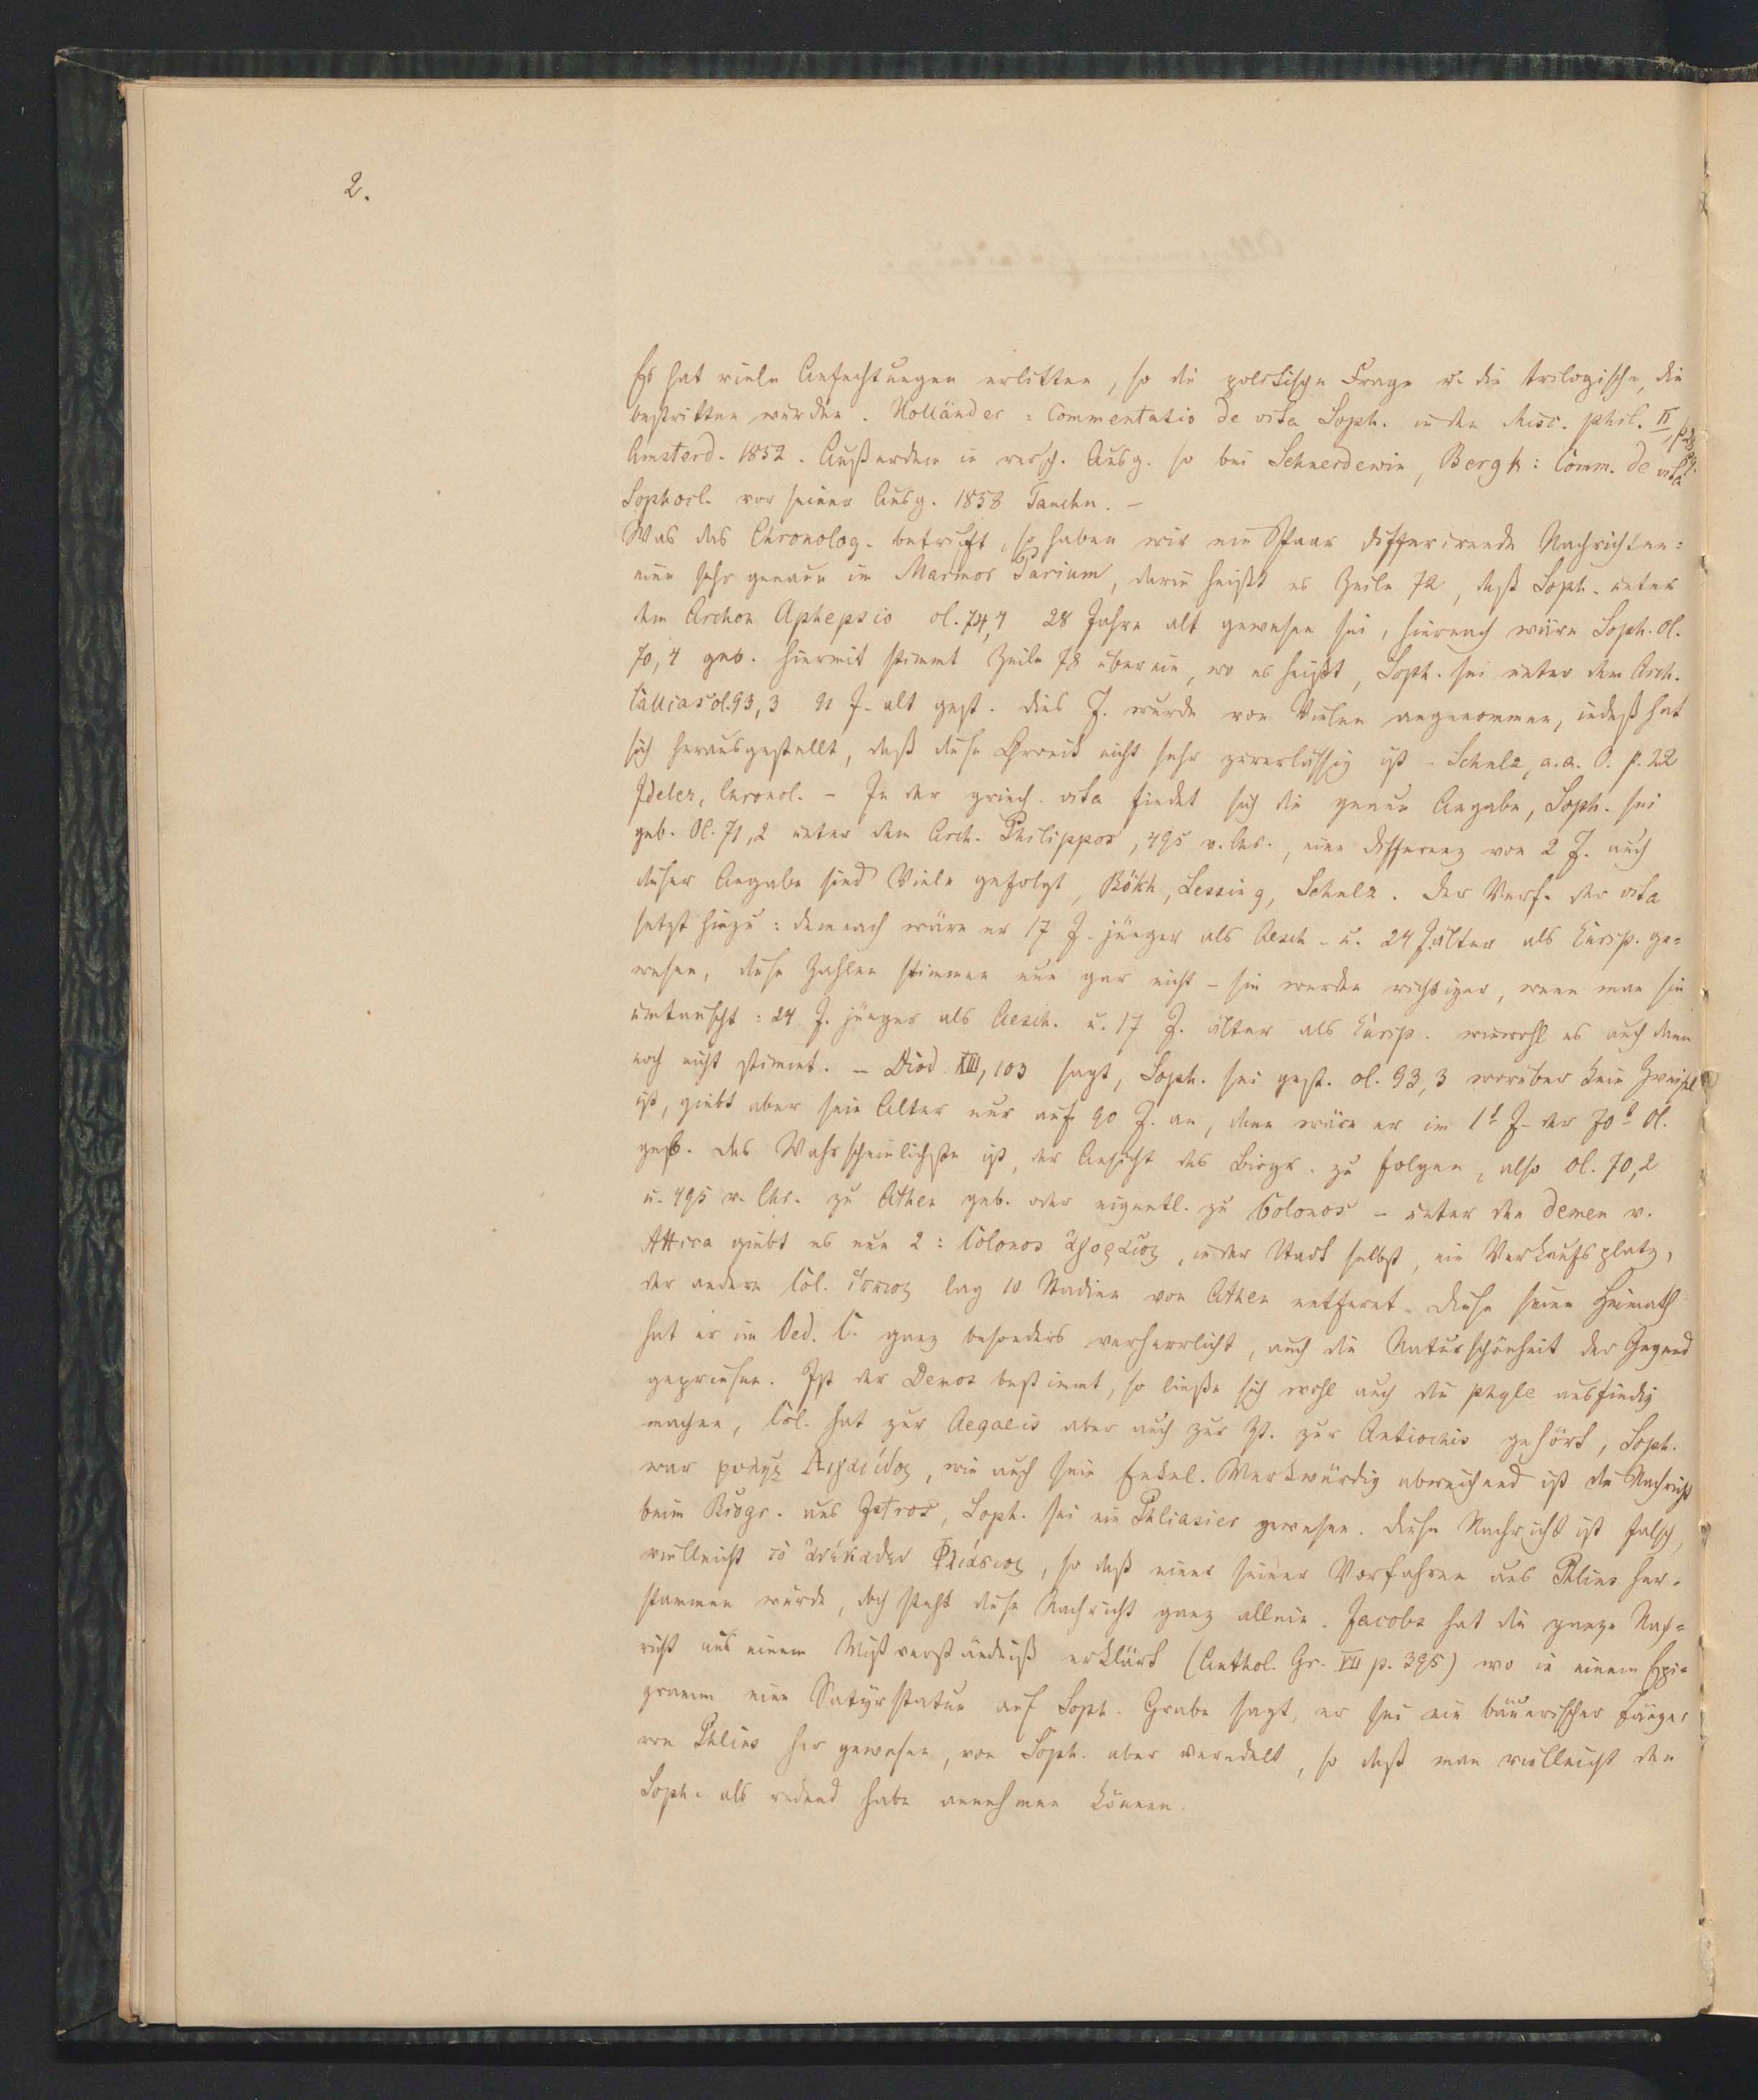 2.
Es hat viele Anfechtungen erlitten, so die politische Frage u. die trilogische, die
bestritten wurden. Holländer: Commentatio de vita Soph. in den Misc. phil. II, p.
Amsterd. 1852. Außerdem in versch. Ausg. so bei Schneidewin, Bergk: Comm. de vita
Sophocl. vor seiner Ausg. 1858 Tauchn. –
Was das Chronolog. betrifft, so haben wir ein Paar differirende Nachrichten:
eine sehr genaue im Marmor Parium, darin heißt es Zeile 72, daß Soph. unter
dem Archon Aphepsio ol. 74,4 28 Jahre alt gewesen sei, hiernach wäre Soph. Ol.
70,4 geb. Hiermit stimmt Zeile 78 überein, wo es heißt, Soph. sei unter dem Arch.
Callias ol. 93,3 91 J. alt gest. Dies J. wurde von Vielen angenommen, indeß hat
sich herausgestellt, daß diese Chronik nicht sehr zuverlässig ist – Schulz, a. a. O. p. 22
Ideler, Chronol. – In der griech. vita findet sich die genaue Angabe, Soph. sei
geb. Ol. 71,2 unter dem Arch. Philippos, 495 v. Chr., eine Differenz von 2 J. auch
dieser Angabe sind Viele gefolgt, Bökh, Lessing, Schulz. Der Verf. der vita
setzt hinzu: demnach wäre er 17 J. jünger als Aesch. u. 24 J. älter als Eurip. ge-
wesen, diese Zahlen stimmen nun gar nicht – sie werden richtiger, wenn man sie
umtauscht: 24 J. jünger als Aesch. u. 17 J. älter als Eurip. wiewohl es auch dann
noch nicht stimmt. – Diod. XIII, 103 sagt, Soph. sei gest. ol. 93,3 worüber kein Zweifel
ist, giebt aber sein Alter nur auf 90 J. an, dann wäre er im 1t J. der 70t Ol.
geb. Das Wahrscheinlichste ist, der Ansicht des Biogr. zu folgen, also Ol. 70,2
u. 495 v. Chr. zu Athen geb. oder eigentl. zu Colonos – unter den Demen v.
Attica giebt es nun 2: Colonos ἀγοραῖος, in der Stadt selbst, ein Verkaufsplatz,
der andere Col. ἵππιος lag 10 Stadien von Athen entfernt. Diese seine Heimath
hat er im Oed. C. ganz besonders verherrlicht, auch die Naturschönheit der Gegend
gepriesen. Ist der Demos bestimmt, so ließe sich wohl auch die phyle ausfindig
machen, Col. hat zur Aegaeis aber auch zur Zt. zur Antiochis gehört, Soph.
war φυλῆς Αἰγαΐδος, wie auch sein Enkel. Merkwürdig abweichend ist die Nachricht
beim Biogr. aus Istros, Soph. sei ein Phliasier gewesen. Diese Nachricht ist falsch,
vielleicht τὸ ἀνέκαθεν Φλιάσιος, so daß einer seiner Vorfahren aus Phlius her-
stammen würde, doch steht diese Nachricht ganz allein. Jacobs hat die ganze Nach-
richt aus einem Mißverständniß erklärt (Anthol. Gr. VII p. 395) wo in einem Epi-
gramm eine Satyrstatue auf Soph. Grabe sagt, er sei ein bäuerischer Tänzer
von Phlius her gewesen, von Soph. aber veredelt, so daß man vielleicht den
Soph. als redend habe annehmen können.